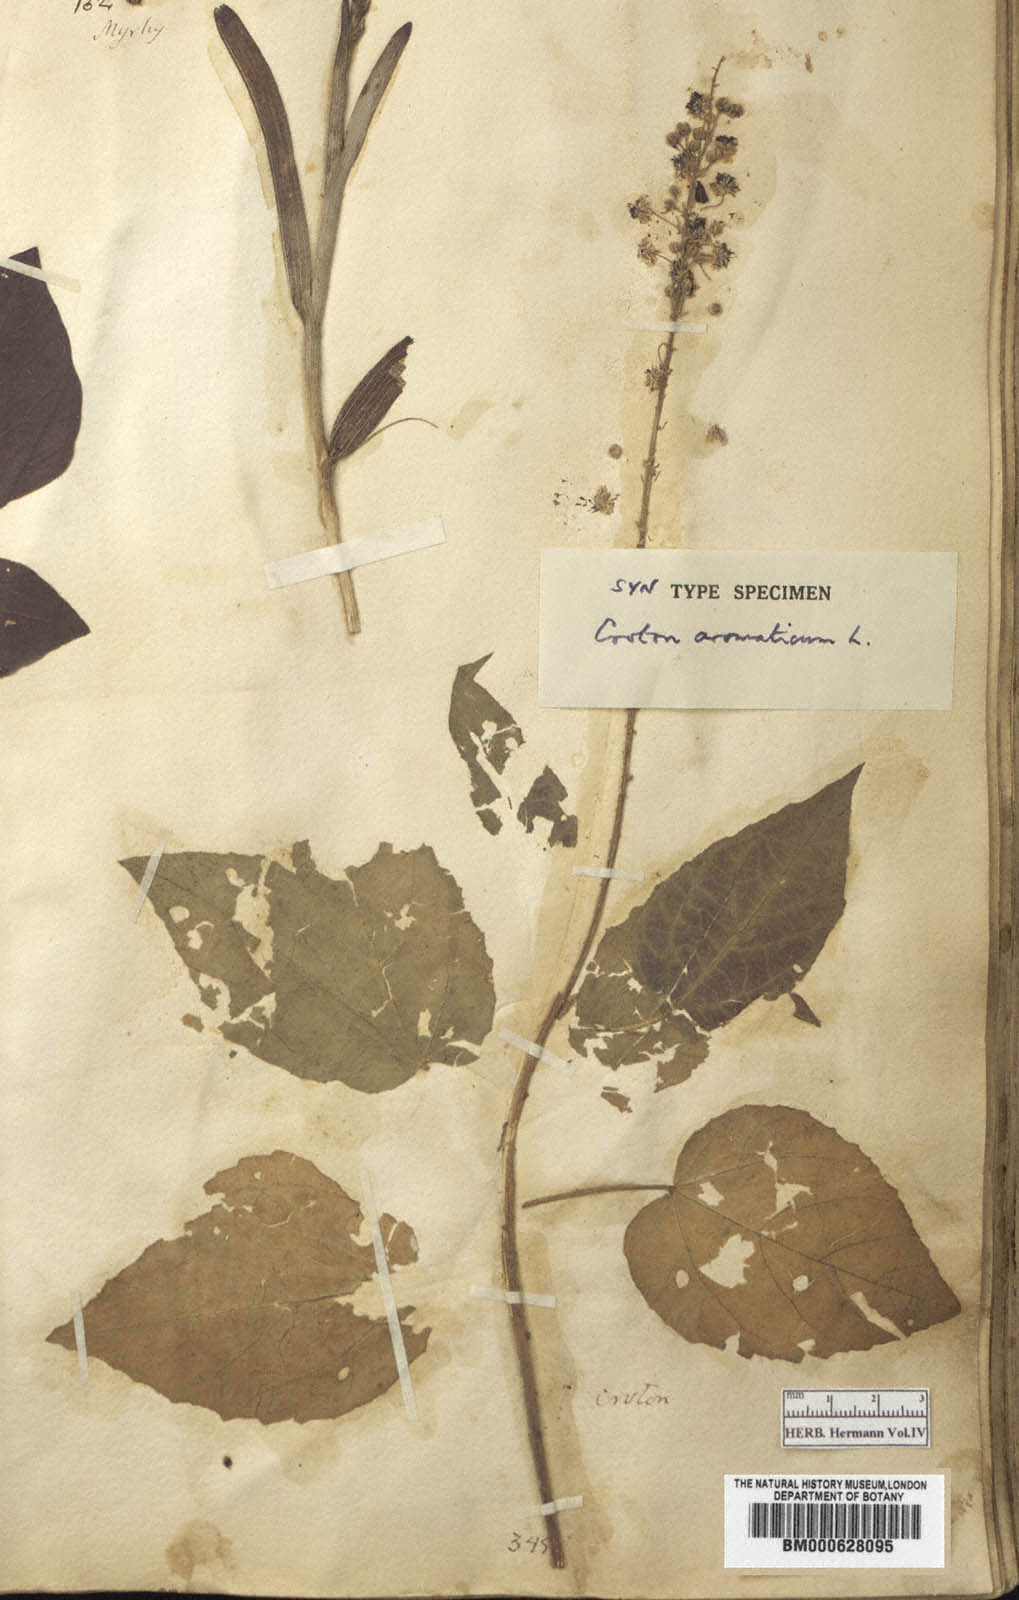 Myrhy
SYN TYPE SPECIMEN
Croton aromaticum L.
Croton
mm 1 2 3
HERB. Hermann Vol.IV
THE NATURAL HISTORY MUSEUM,LONDON
DEPARTMENT OF BOTANY
BM000628095